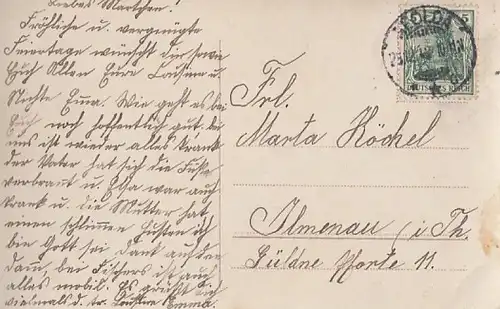 Liebes Martchen!
Fröhliche u. vergnügte
Feiertage wünscht dir sowie
Euch Allen Eure Cousine u.
Nichte Emma. Wie geht es bei
Euch noch hoffentlich gut. bei
uns ist wieder alles krank
der Vater hat sich die Füße
verbrant u. Elsa war auch
krank u. die Mutter hat
einen schlimen Husten ich
bin Gott sei dank auf den
dam, bei Fischers ist auch
alles mobil. Es grüßt dich
vielmals d. tr. Cousine Emma.
APOLDA
5
DEUTSCHES REICH
Frl.
Marta Köchel
Ilmenau i. Th.
Güldne Pforte 11.